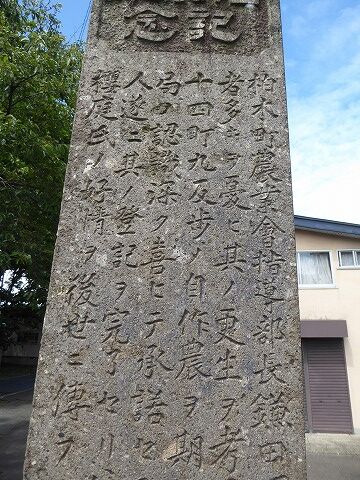 記
念
柏木町農事會指導部長鎌田
者多キヲ憂ヒ其ノ更生ヲ考
十四町九反歩ヲ自作農ヲ期
局の認識深ク喜ヒテ承諾セ
人遂ニ其ノ登記ヲ完了セリ
櫻庭氏ノ好情ヲ後世ニ傳ヲ